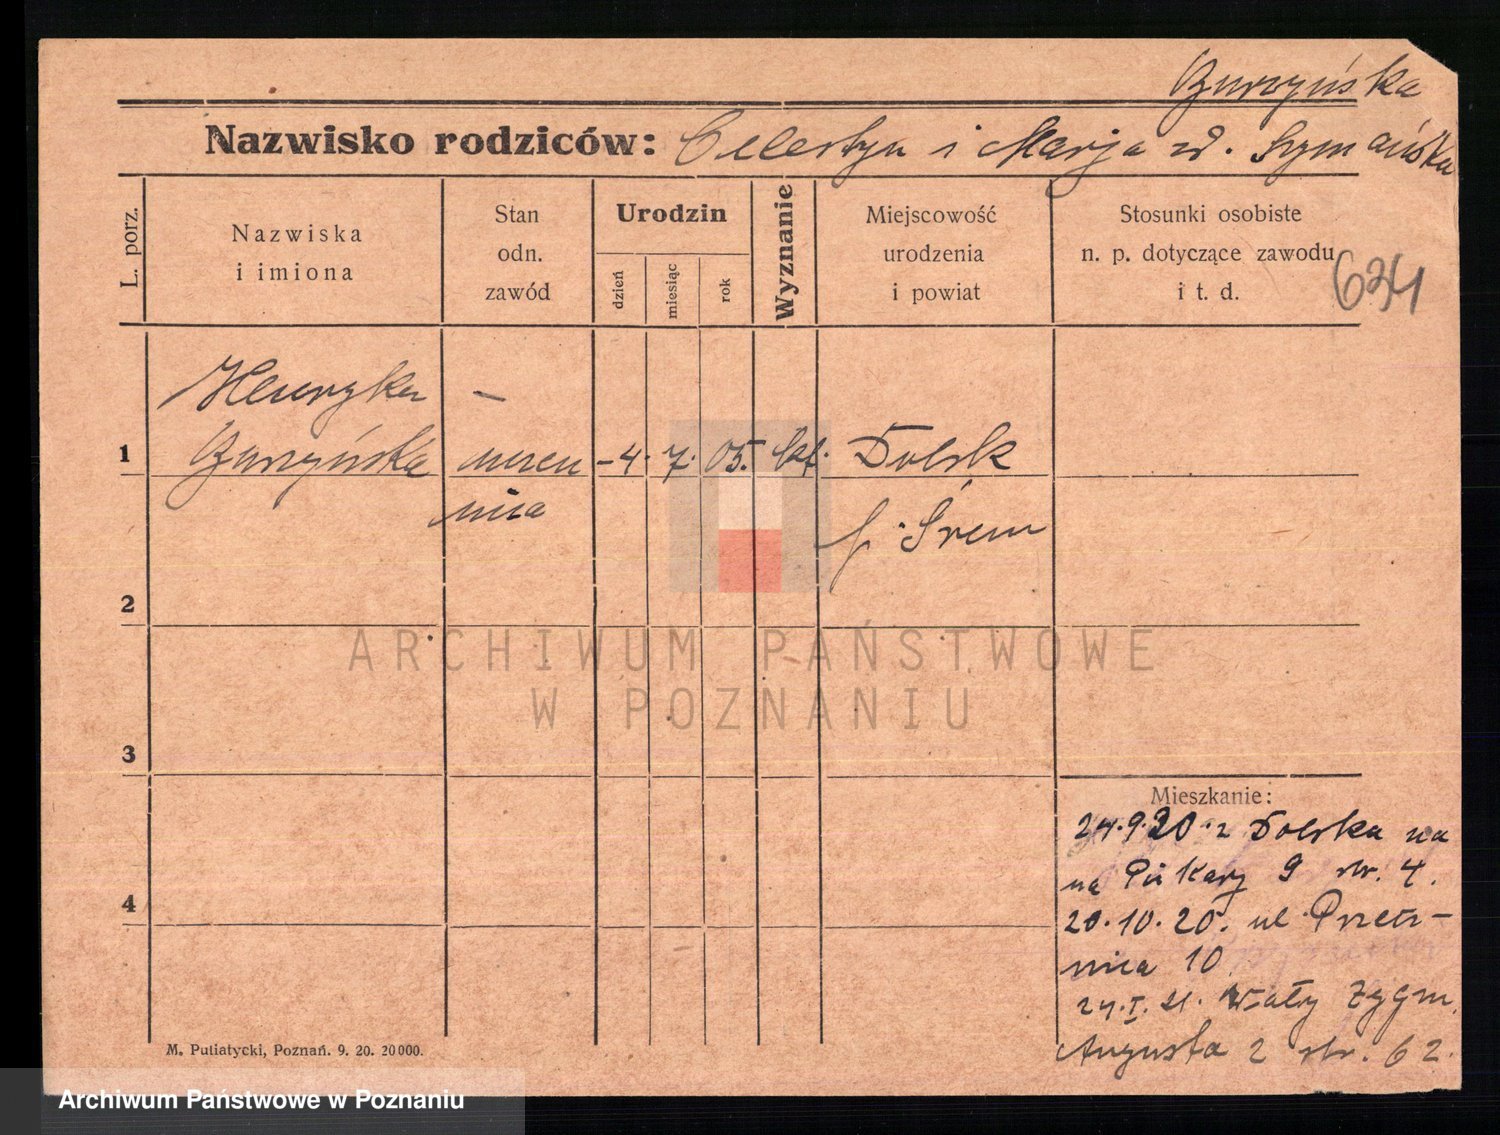 Nazwisko rodziców: Celestyn i Marja zd. Szymańska
L. porz.
Nazwiska
i imiona
Stan
odn.
zawód
Urodzin
dzień
miesiąc
rok
Wyznanie
Miejscowość
urodzenia
i powiat
Stosunki osobiste
n. p. dotyczące zawodu
i t. d.
634
Henryka –
1 uczen – 4. 7. 05. kat. Dolsk
nica p. Śrem
2
ARCHIWUM PAŃSTWOWE
W POZNANIU
3
Mieszkanie:
24.9.20 z Dolska na
na Piekary 9 str. 4.
4
20.10.20. ul
10
24.I.21. Wały Zygm.
Augusta 2 str. 62.
M. Putiatycki, Poznań. 9. 20. 20000.
Archiwum Państwowe w Poznaniu